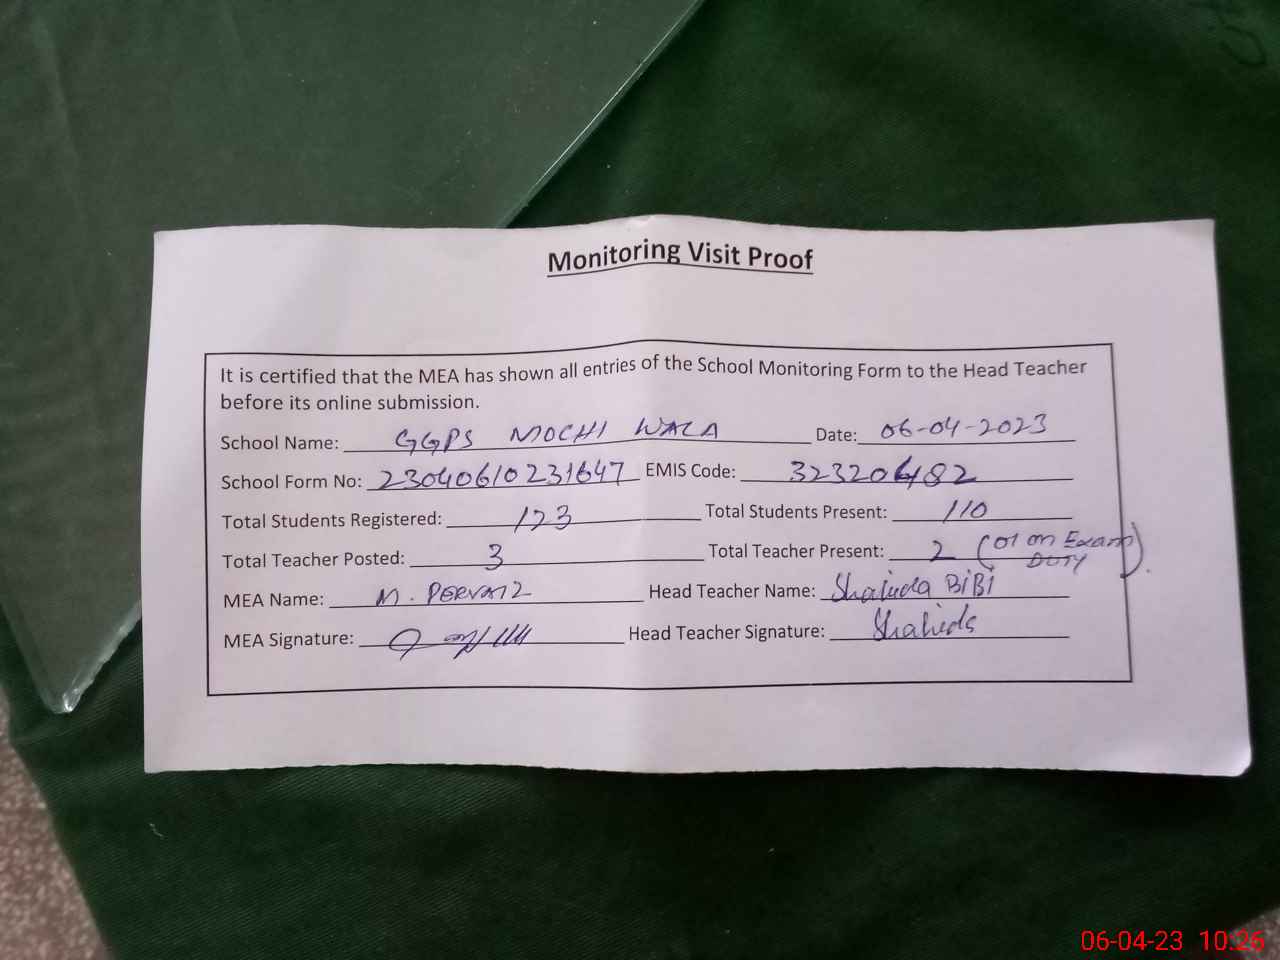 Monitoring Visit Proof
It is certified that the MEA has shown all entries of the School Monitoring Form to the Head Teacher
before its online submission.
School Name: GGPS MOCHI WALA Date: 06-04-2023
School Form No: 23040610231647 EMIS Code: 32320482
Total Students Registered: 123 Total Students Present: 110
Total Teacher Posted: 3 Total Teacher Present: 2 (01 on Exam
DUTY)
MEA Name: M. PERVAIZ Head Teacher Name: Shahida BiBi
MEA Signature: Head Teacher Signature: Shahida
06-04-23 10:26